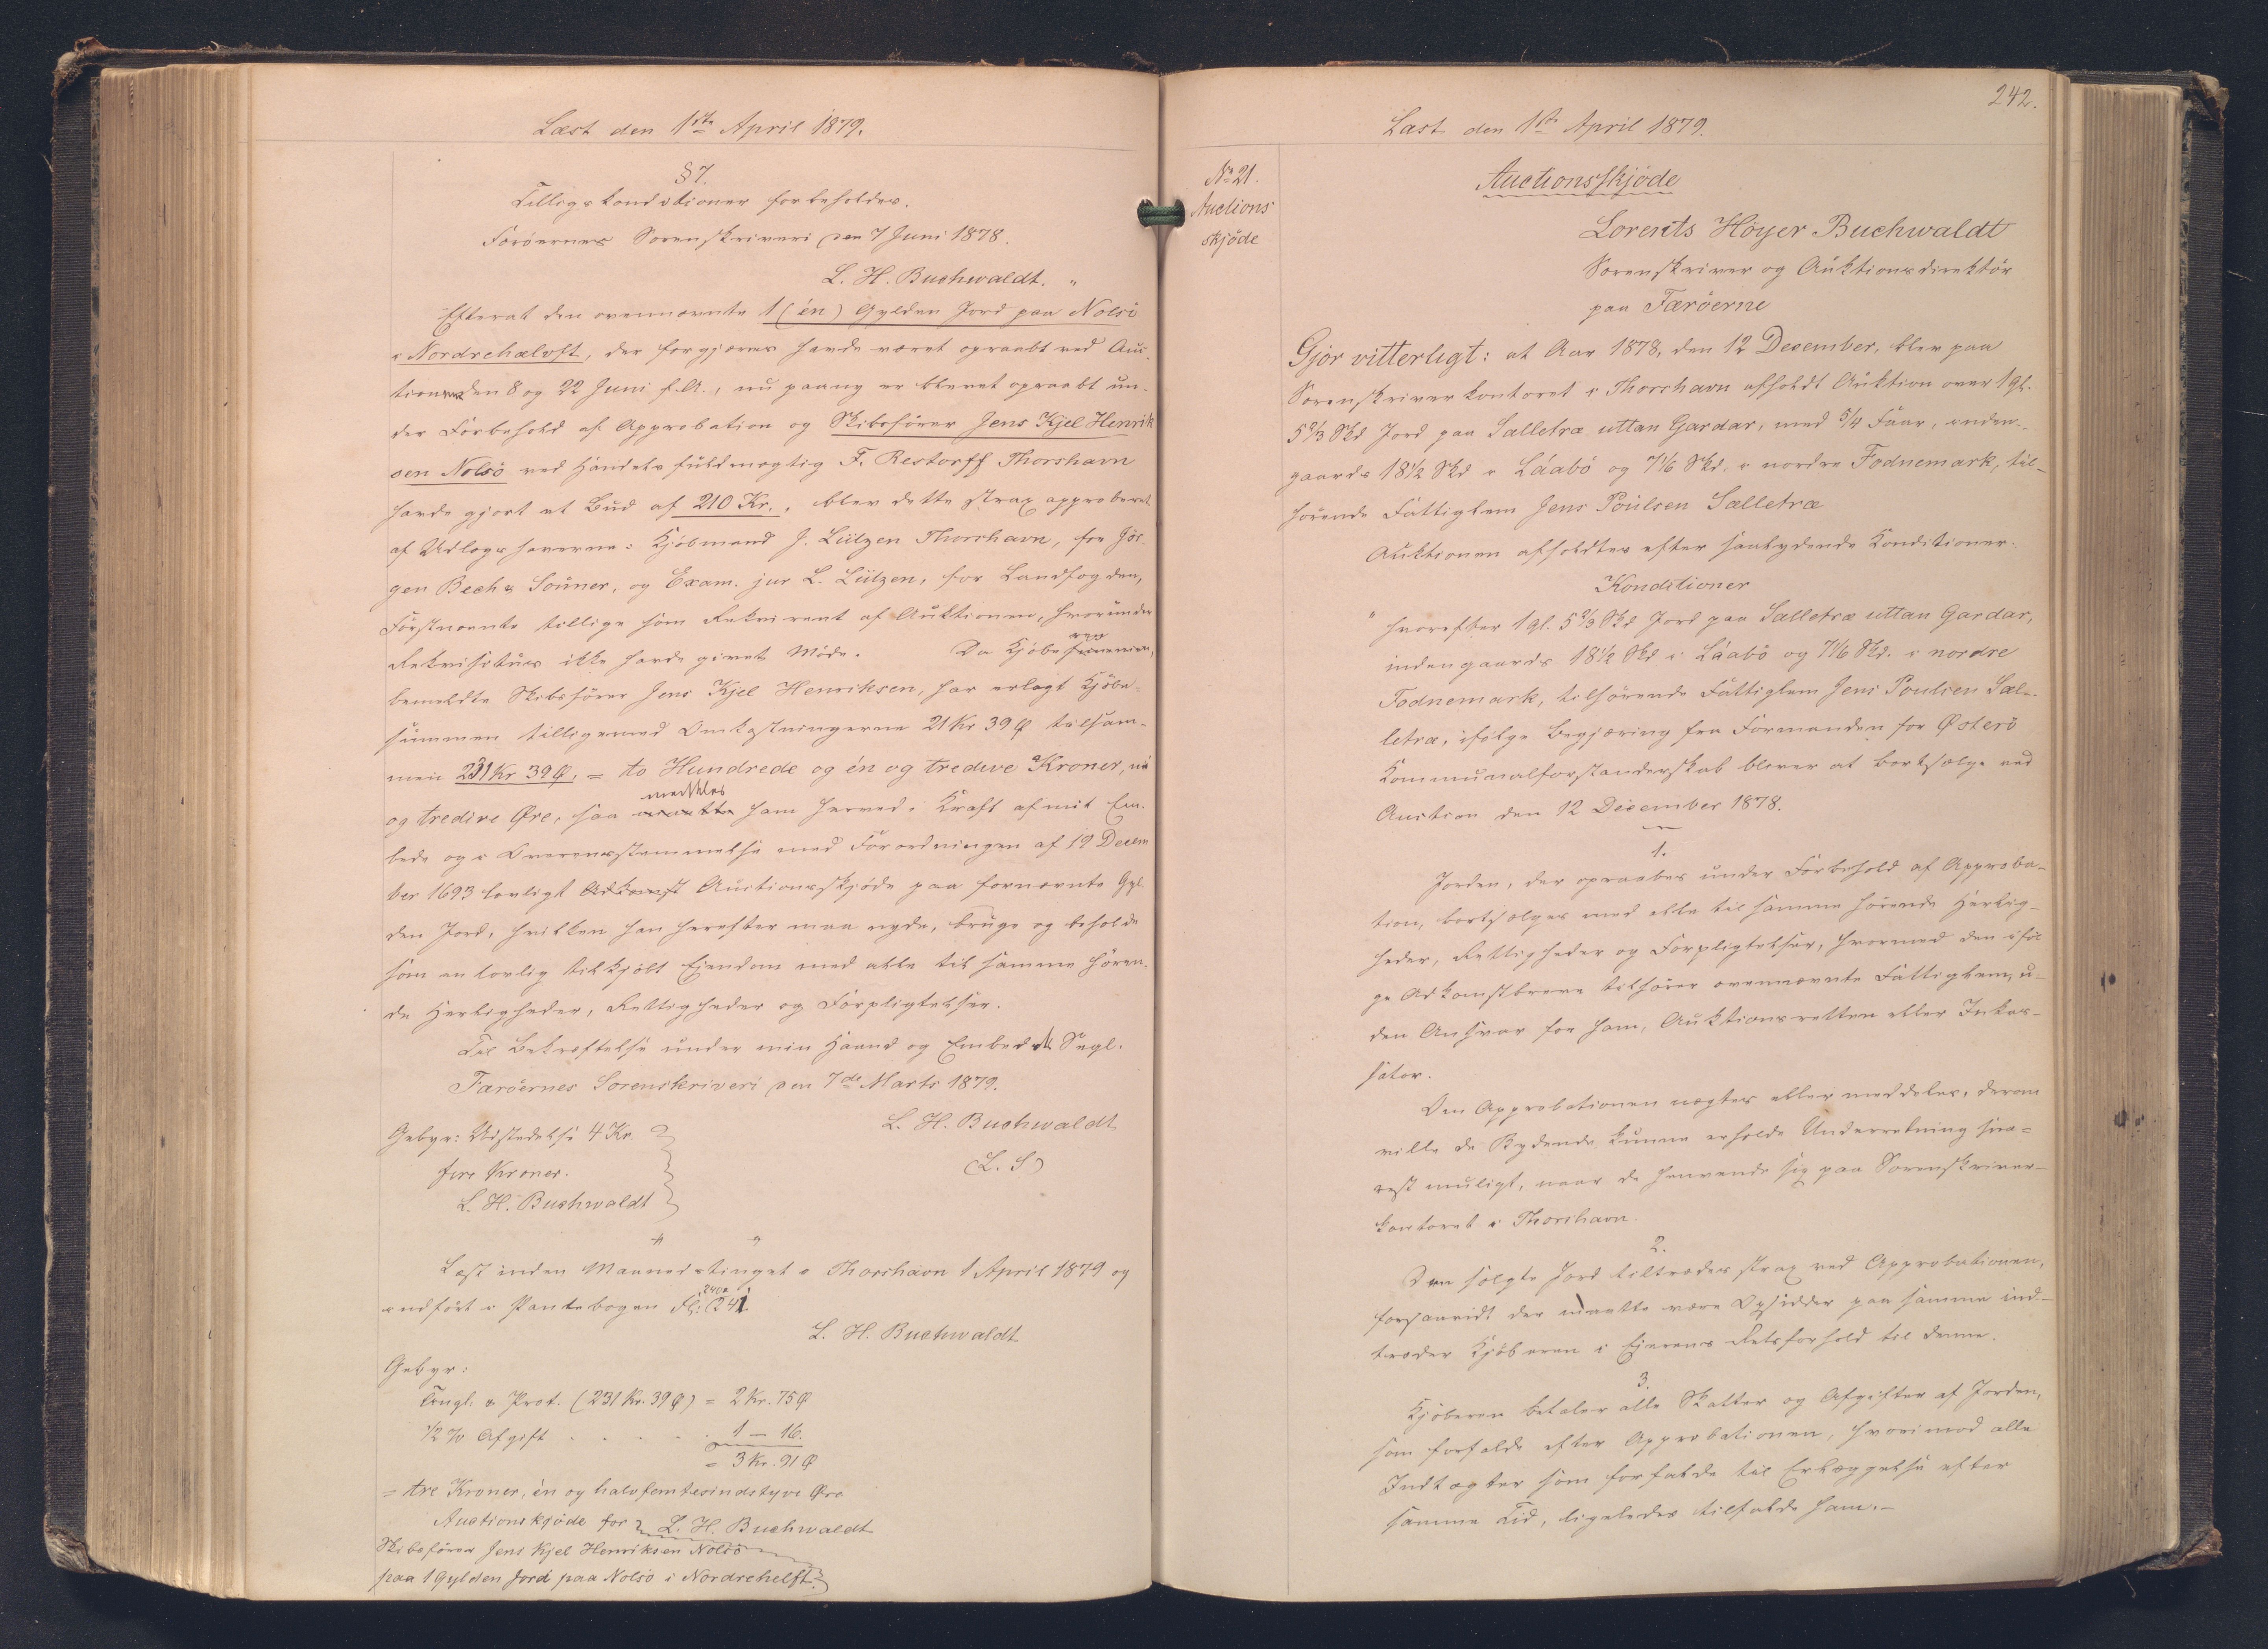 Læst den 1ste April 1879.
§ 7.
Tillægskonditioner forbeholdes.
Færöernes Sorenskriveri den 7 Juni 1878.
L. H. Buchwaldt. "
Efterat den ovennævnte 1 (én) Gylden Jord paa Nolsö
i Nordrehælvft, der forgjæves havde været opraabt ved Auc-
tionerne den 8 og 22 Juni f. A., nu paany er blevet opraabt un-
der Forbehold af Approbation og Skibsfører Jens Kjel Henrik
sen Nolsö ved Handelsfuldmægtig F. Restorff Thorshavn
havde gjort et Bud af 210 Kr., blev dette strax approberet
af Udlægshaverne: Kjöbmand J. Lützen Thorshavn, for Jör-
gen Bechs Sönner, og Exam. jur L. Lützen, for Landfogden,
Förstnævnte tillige som Rekvirent af Auktionen, hvorunder
Rekvisitus ikke havde givet Möde. Da Kjöberen,
bemeldte Skibsförer Jens Kjel Henriksen, har erlagt Kjöbe-
summen tilligemed Omkostningerne 21 Kr 39 Ø tilsam-
men 231 Kr 39 Ø. = to Hundrede og én og tredive Kroner, ni
og tredive Øre, saa meddeles ham herved i Kraft af mit Em-
bede og i Overensstemmelse med Forordningen af 19 Decem
ber 1693 lovligt Adkomst Auctionsskjöde paa fornævnte Gyl-
den Jord, hvilken han herefter maa nyde, bruge og beholde
som en lovlig tilkjöbt Ejendom med alle til samme hören-
de Herligheder, Rettigheder og Forpligtelser.
Til Bekræftelse under min Haand og Embeds Segl.
Færöernes Sorenskriveri den 7de Marts 1879.
L. H. Buchwaldt
(L. S)
Gebyr: Udstedelse 4 Kr.
fire Kroner.
L. H. Buchwaldt
" "
Læst inden Maanedstinget i Thorshavn 1 April 1879 og
indført i Pantebogen Fol: 240b 241
L. H. Buchwaldt
Gebyr:
Tingl. & Prot. (231 Kr. 39 Ø) = 2 Kr. 75 Ø
1/2 % Afgift . . . . . 1 — 16.
= 3 Kr. 91 Ø
= tre Kroner, én og halvfemtesindstyve Øre
Auctionskjöde for L. H. Buchwaldt
Skibsförer Jens Kjel Henriksen Nolsö
paa 1 Gylden Jord paa Nolsö i Nordrehelft.
242.
Læst den 1ste April 1879.
No 21.
Auctions
skjöde
Auctionsskjöde
Lorents Höyer Buchwaldt
Sorenskriver og Auktionsdirektör
paa Færöerne
Gjör vitterligt: at Aar 1878, den 12 December, blev paa
Sorenskriverkontoret i Thorshavn afholdt Auktion over 1 gl.
5 2/3 Skd Jord paa Salletræ uttan Gardar, med 5/4 Faar, inden-
gaards 18 1/2 Skd i Láabö og 7 1/6 Skd. i nordre Todnemark, til-
hörende Fattiglem Jens Poulsen Sælletræ
Auktionen afholdtes efter saalydende Konditioner.
Konditioner
" hvorefter 1 gl. 5 2/3 Skd Jord paa Salletræ uttan Gardar,
indengaards 18 1/2 Skd i Láabö og 7 1/6 Skd. i nordre
Todnemark, tilhörende Fattiglem Jens Poulsen Sæl-
letræ, ifölge Begjæring fra Formanden for Østerö
Kommunalforstanderskab bliver at bortsælge ved
Auction den 12 December 1878.
1.
Jorden, der opraabes under Forbehold af Approba-
tion, bortsælges med alle til samme hörende Herlig-
heder, Rettigheder og Forpligtelser, hvormed den iföl
ge Adkomstbreve tilhører ovennævnte Fattiglem, u-
den Ansvar for ham, Auktionsretten eller Inkas-
sator.
Om Approbationen nægtes eller meddeles, derom
ville de Bydende kunne erholde Underretning sna-
rest muligt, naar de henvende sig paa Sorenskriver-
kontoret i Thorshavn.
2.
Den solgte Jord tiltrædes strax ved Approbationen,
forsaavidt der maatte være Opsidder paa samme ind-
træder Kjöberen i Ejerens Retsforhold til denne.
3.
Kjöberen betaler alle Skatter og Afgifter af Jorden,
som forfalde efter Approbationen, hvorimod alle
Indtægter som forfalde til Erlæggelse efter
samme Tid, ligeledes tilfalde ham.-